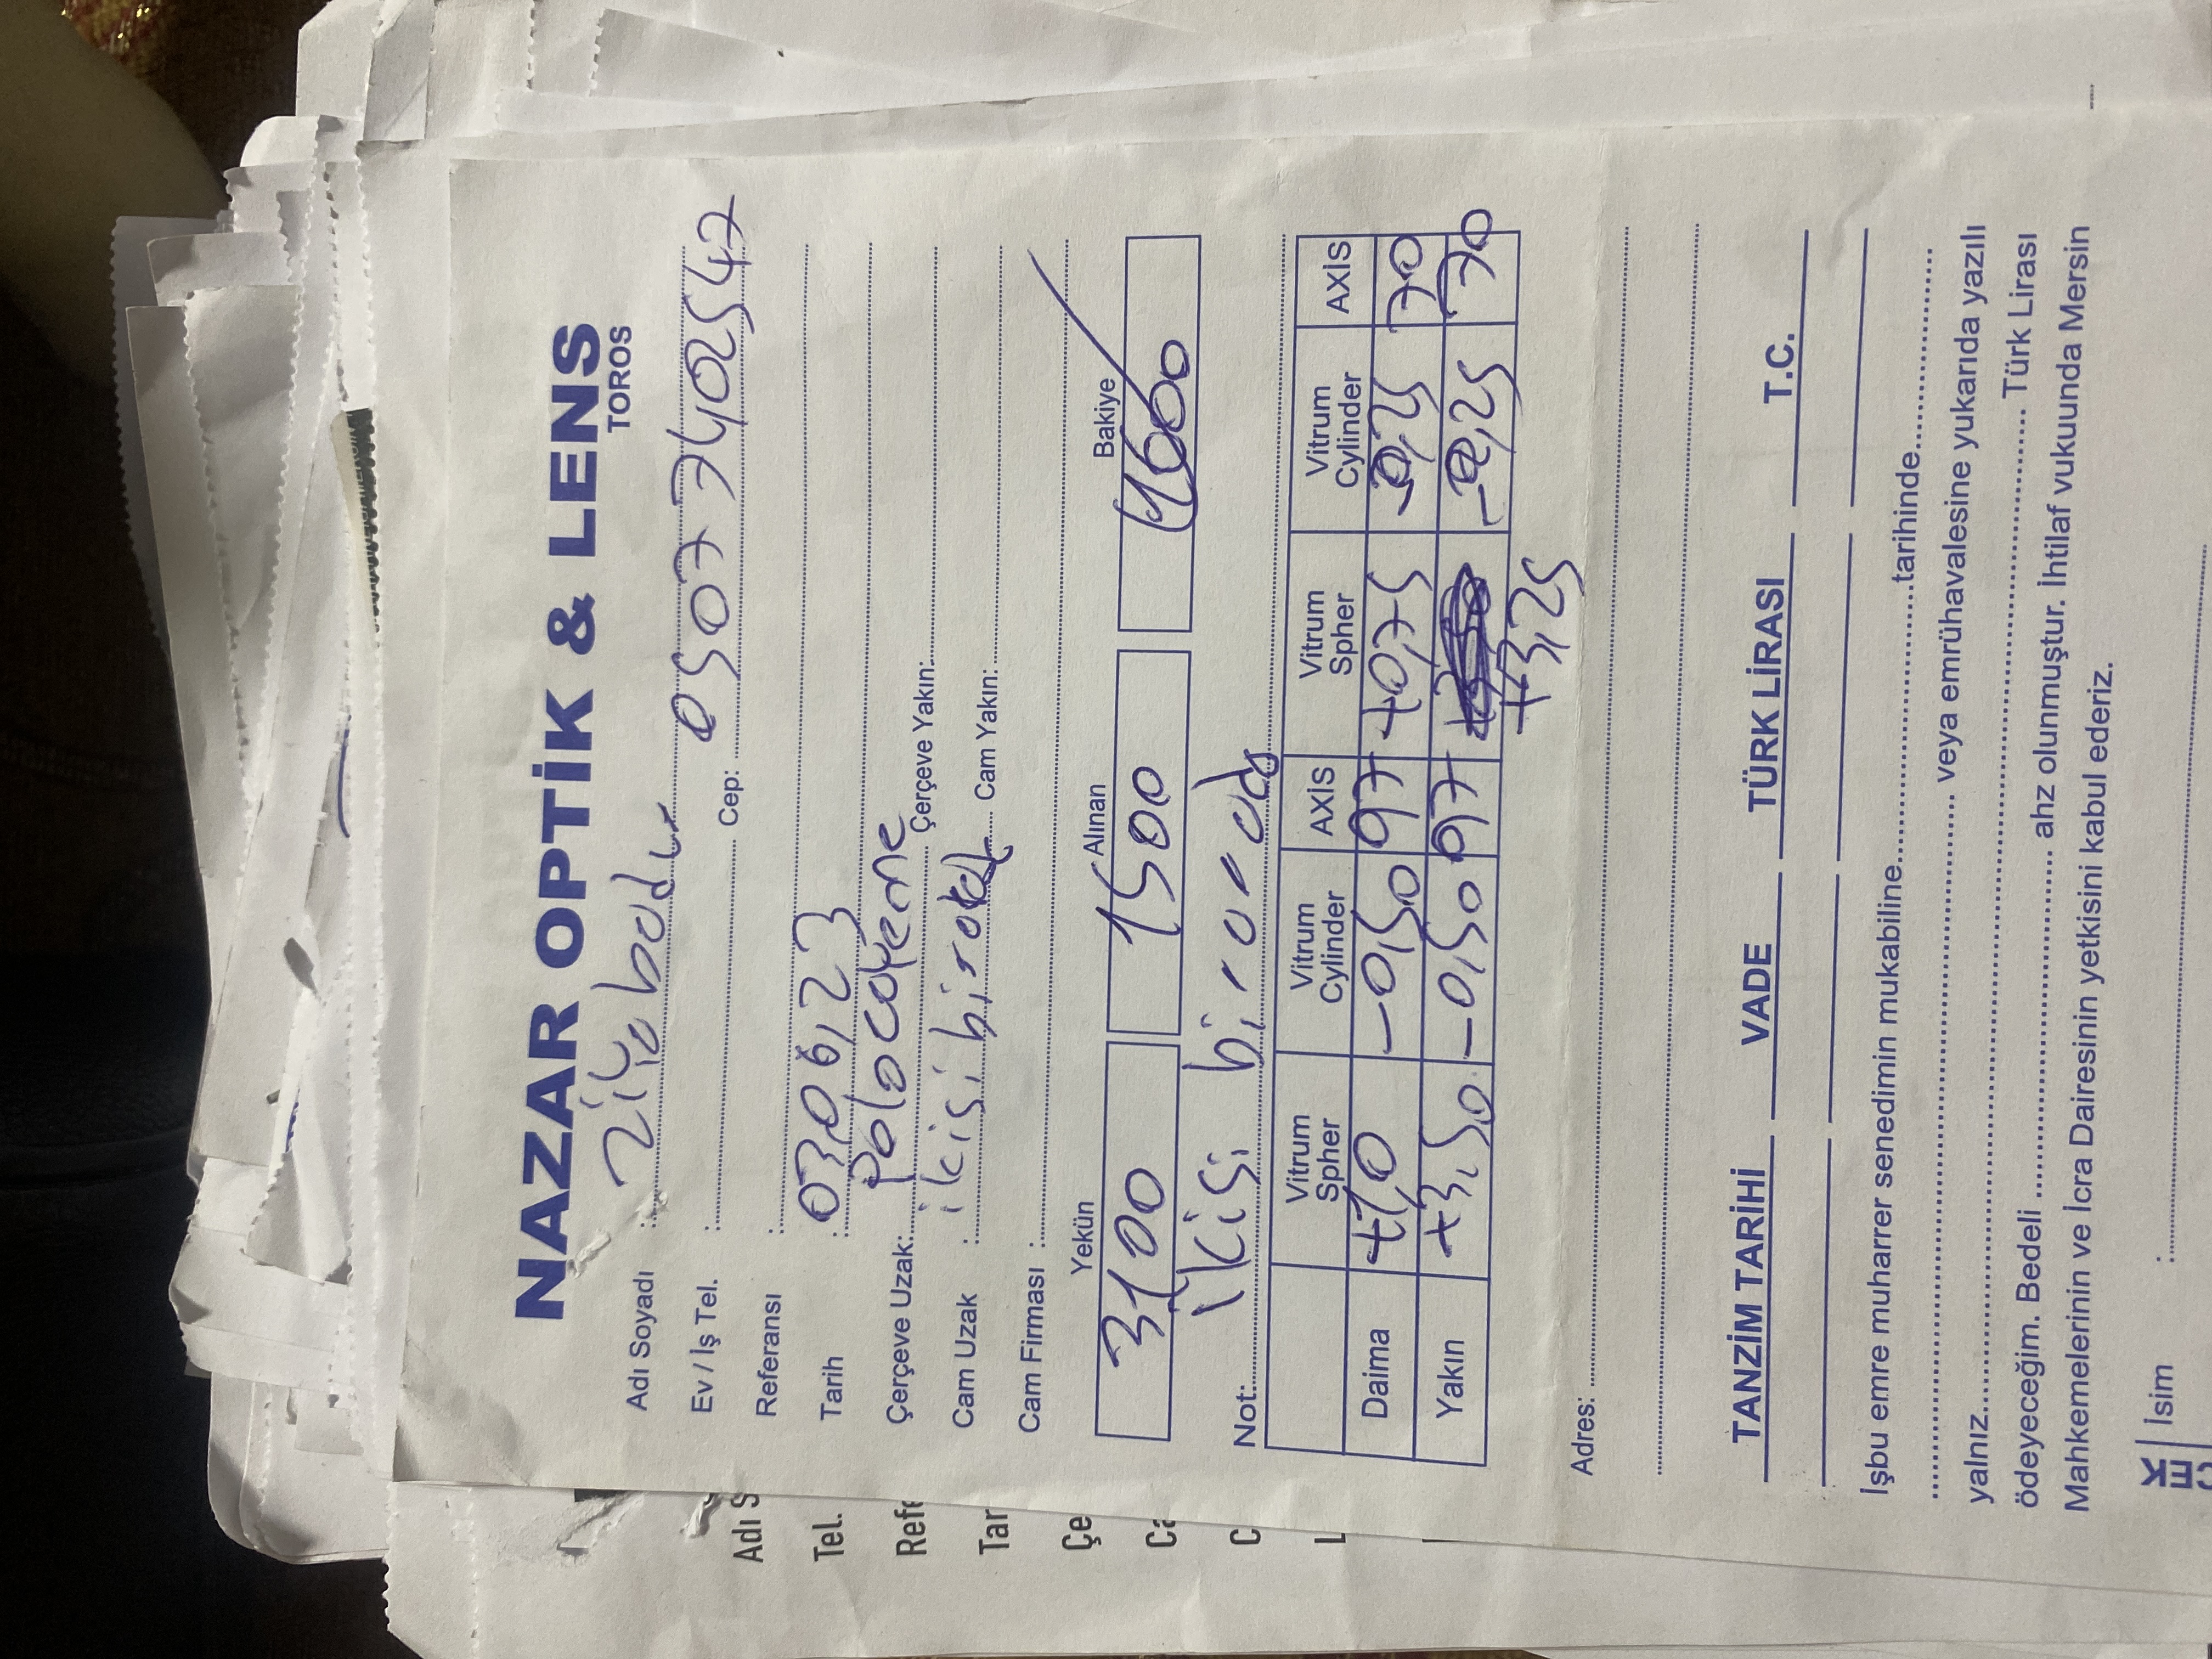 NAZAR OPTİK & LENS
TOROS
Adı Soyadı : Ziya badur
Ev / İş Tel. : Cep: 0507 7402547
Referansı :
Tarih : 03,06,23
Çerçeve Uzak: Çerçeve Yakın:
Cam Uzak : ikisi bir Cam Yakın:
Cam Firması :
Yekün Alınan Bakiye
3100 1500 1600
Not: ikisi bir arada
Vitrum Spher Vitrum Cylinder AXİS Vitrum Spher Vitrum Cylinder AXİS
Daima +1,0 -0,50 97 +0,75 -0,25 70
Yakın +3,50 -0,50 97 -0,25 70
+3,25
Adres:
TANZİM TARİHİ VADE TÜRK LİRASI T.C.
İşbu emre muharrer senedimin mukabiline..............................tarihinde......................
.......................................................................... veya emrühavalesine yukarıda yazılı
yalnız.......................................................................................................... Türk Lirası
ödeyeceğim. Bedeli ..................................... ahz olunmuştur. İhtilaf vukuunda Mersin
Mahkemelerinin ve İcra Dairesinin yetkisini kabul ederiz.
CEK
İsim :
Adı S
Tel.
Refe
Tar
Çe
Ca
C